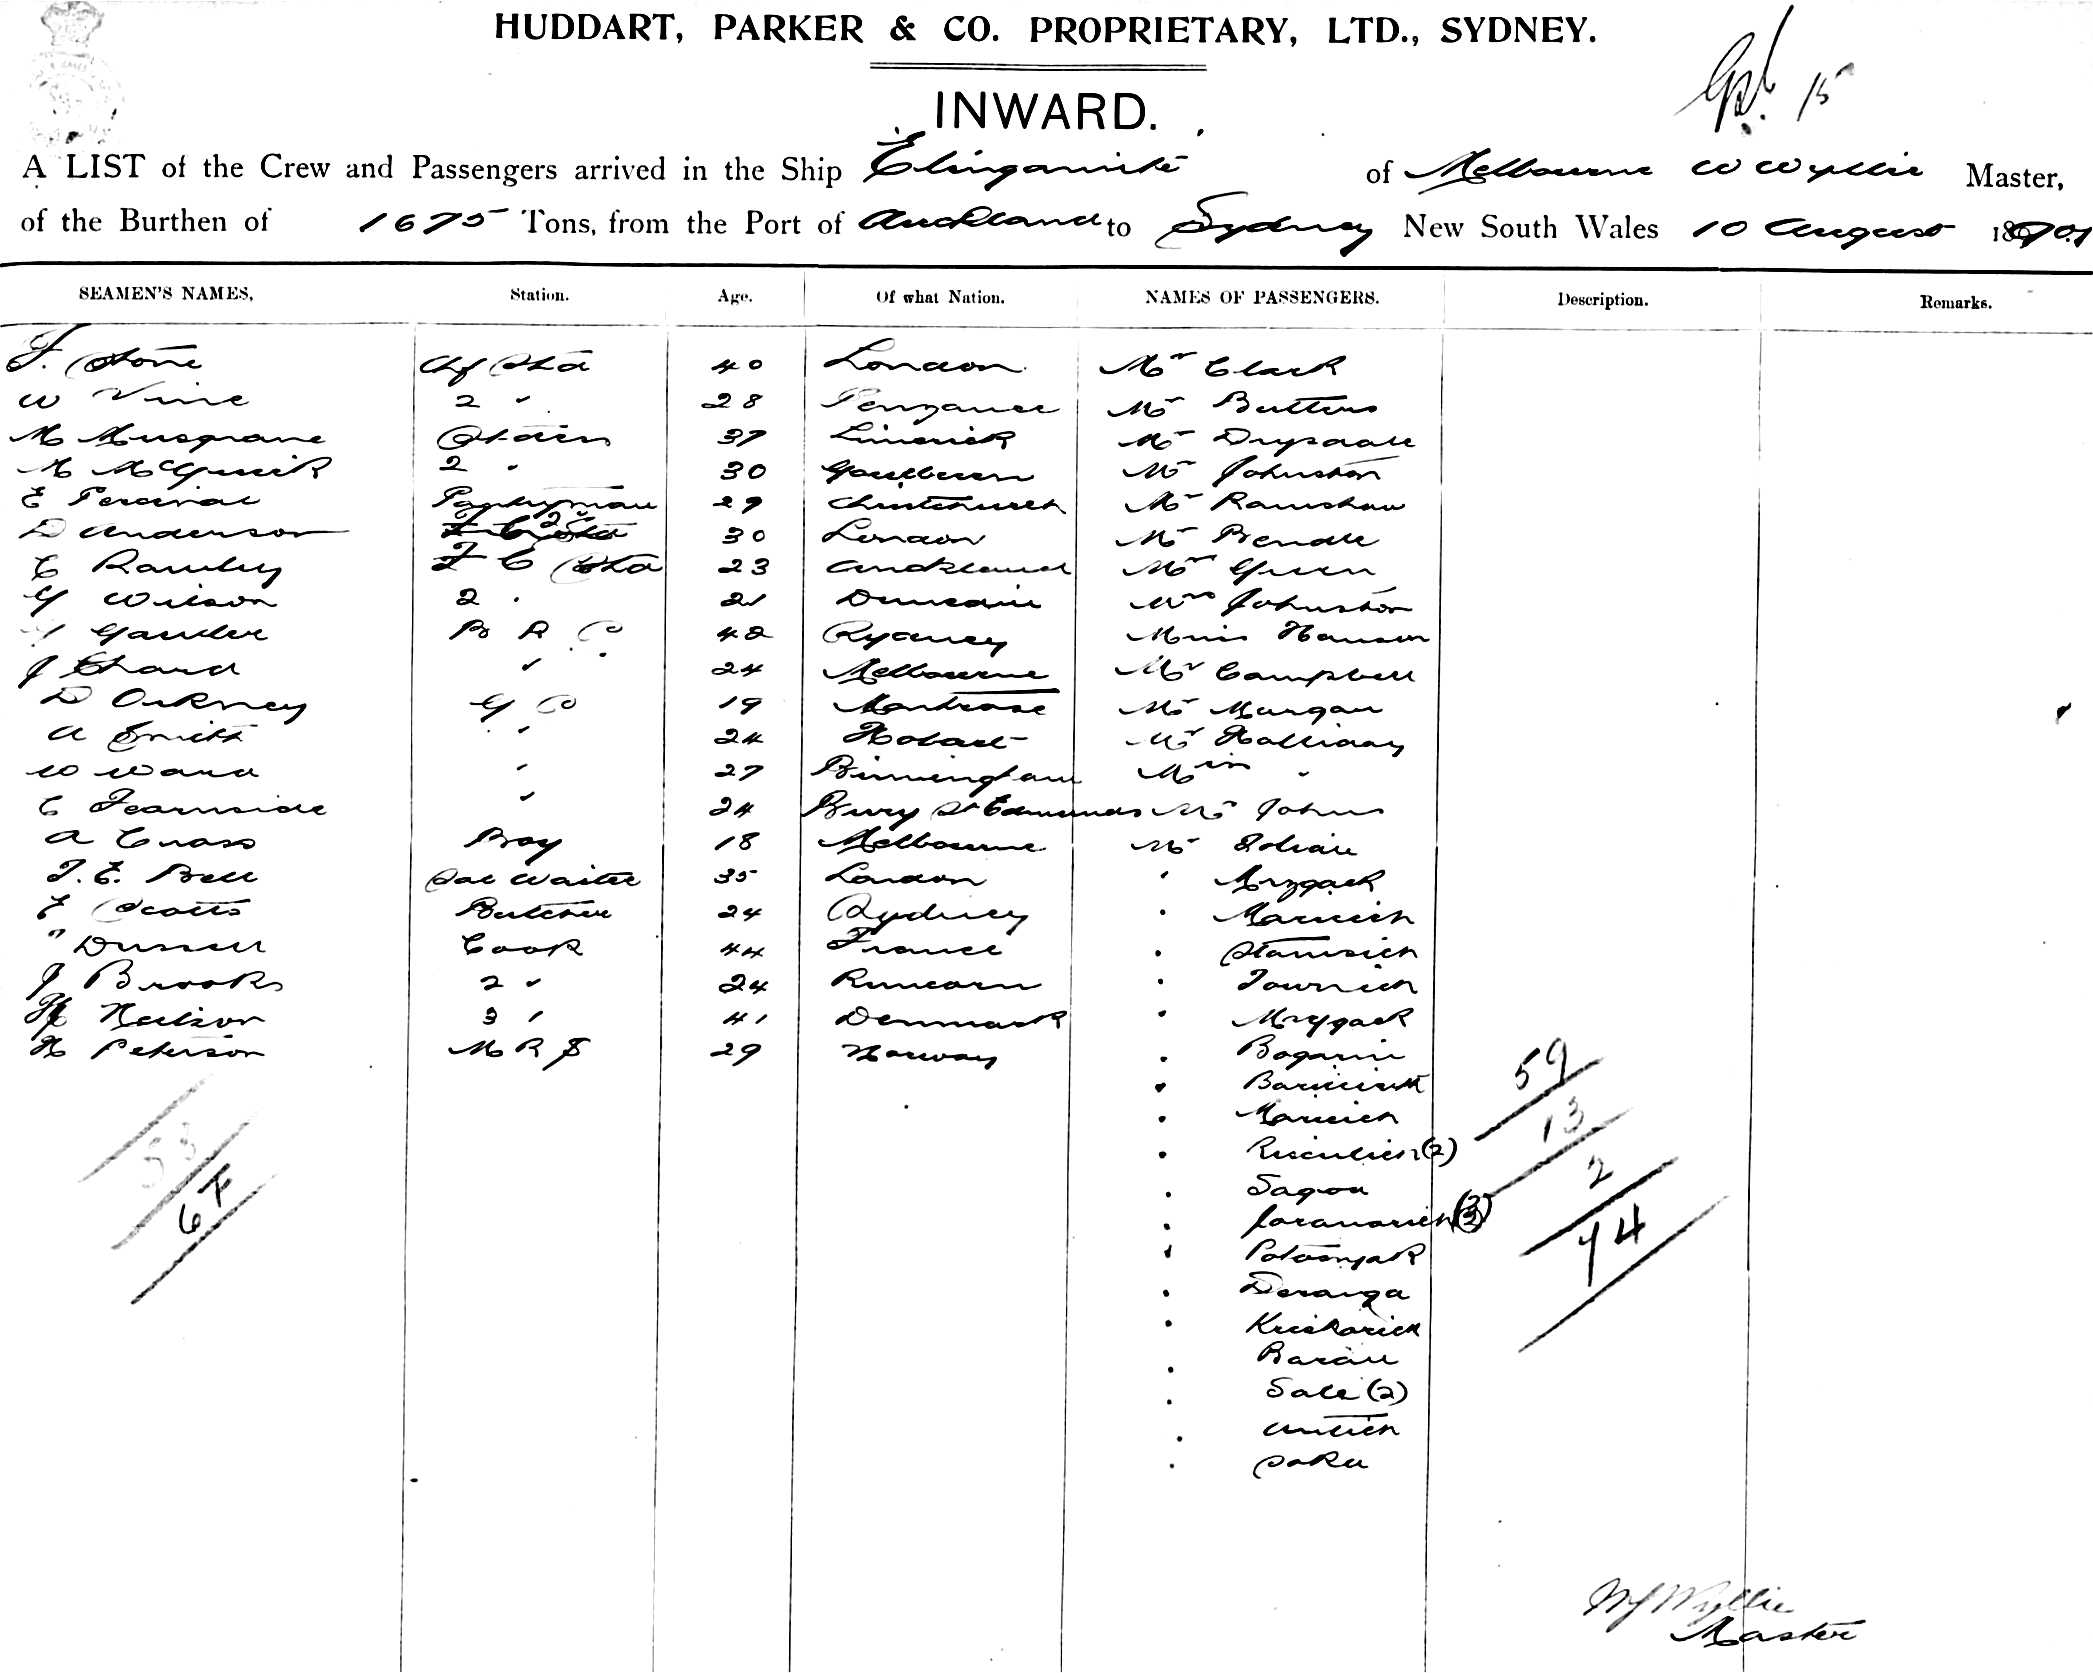 HUDDART, PARKER & CO. PROPRIETARY, LTD., SYDNEY.
15
INWARD.
A LIST of the Crew and Passengers arrived in the Ship Elingamite of Melbourne W Wyllie Master,
of the Burthen of 1675 Tons, from the Port of Auckland to Sydney New South Wales 10 August 1901
SEAMEN'S NAMES, Station. Age. Of what Nation. NAMES OF PASSENGERS. Description. Remarks.
F. Stone Chf Std 40 London Mr Clark
W Vine 2 " 28 Penzance Mr Buttens
M Musgrave 37 Limerick Mr Drysdale
M McGuirk 2 " 30 Goulburn Mr Johnston
E Percival Pantryman 29 Christchurch Mr Ramshaw
D Anderson 30 London Mr Bendle
C Rawley F C Std 23 Auckland Mr Green
G Wilson 2 " 21 Dunedin Mrs Johnston
Gauder B R S 42 Sydney Miss Hanson
J Shand " 24 Melbourne Mr Campbell
D Orkney G S 19 Montrose Mr Morgan
A Smith " 24 Hobart Mr Holliday
W Ward " 27 Birmingham Miss "
C Fearnside " 24 Bury St Edmunds Mr Johns
A Cross Boy 18 Melbourne Mr
T. E. Bell Sal Waiter 35 London " Mrzgack
E Scotts Butcher 24 Sydney " Marinich
" Dussell Cook 44 France " Stamsich
J Brooks 2 " 24 Runcorn " Tournich
H Neilson 3 " 41 Denmark " Mrzgack
H Peterson M R S 29 Norway "
"
" Marinich
" (2)
"
" (3)
"
" Deranga
"
"
" Sale (2)
" Antich
"
59
13
2
74
53
67
W Wyllie
Master